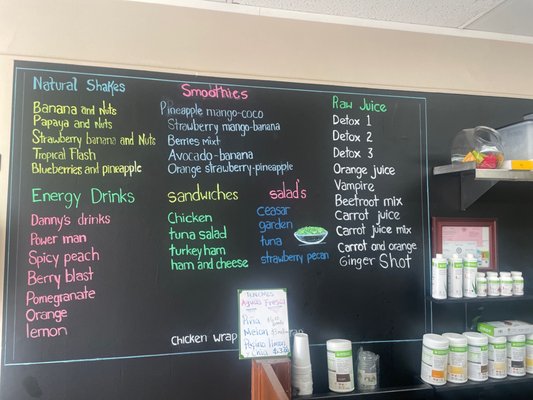 Natural Shakes
Banana and Nuts
Papaya and Nuts
Strawberry banana and Nuts
Tropical Flash
Blueberries and pineapple
Energy Drinks
Danny's drinks
Power man
Spicy peach
Berry blast
Pomegranate
Orange
lemon
Smoothies
Pineapple mango-coco
Strawberry mango-banana
Berries mixt
Avocado-banana
Orange strawberry-pineapple
sandwiches
Chicken
tuna salad
turkey ham
ham and cheese
salad's
ceasar
garden
tuna
strawberry pecan
Chicken wrap
Raw Juice
Detox 1
Detox 2
Detox 3
Orange juice
Vampire
Beetroot mix
Carrot juice
Carrot juice mix
Carrot and orange
Ginger Shot
Aguas Frescas
Piña
Melon